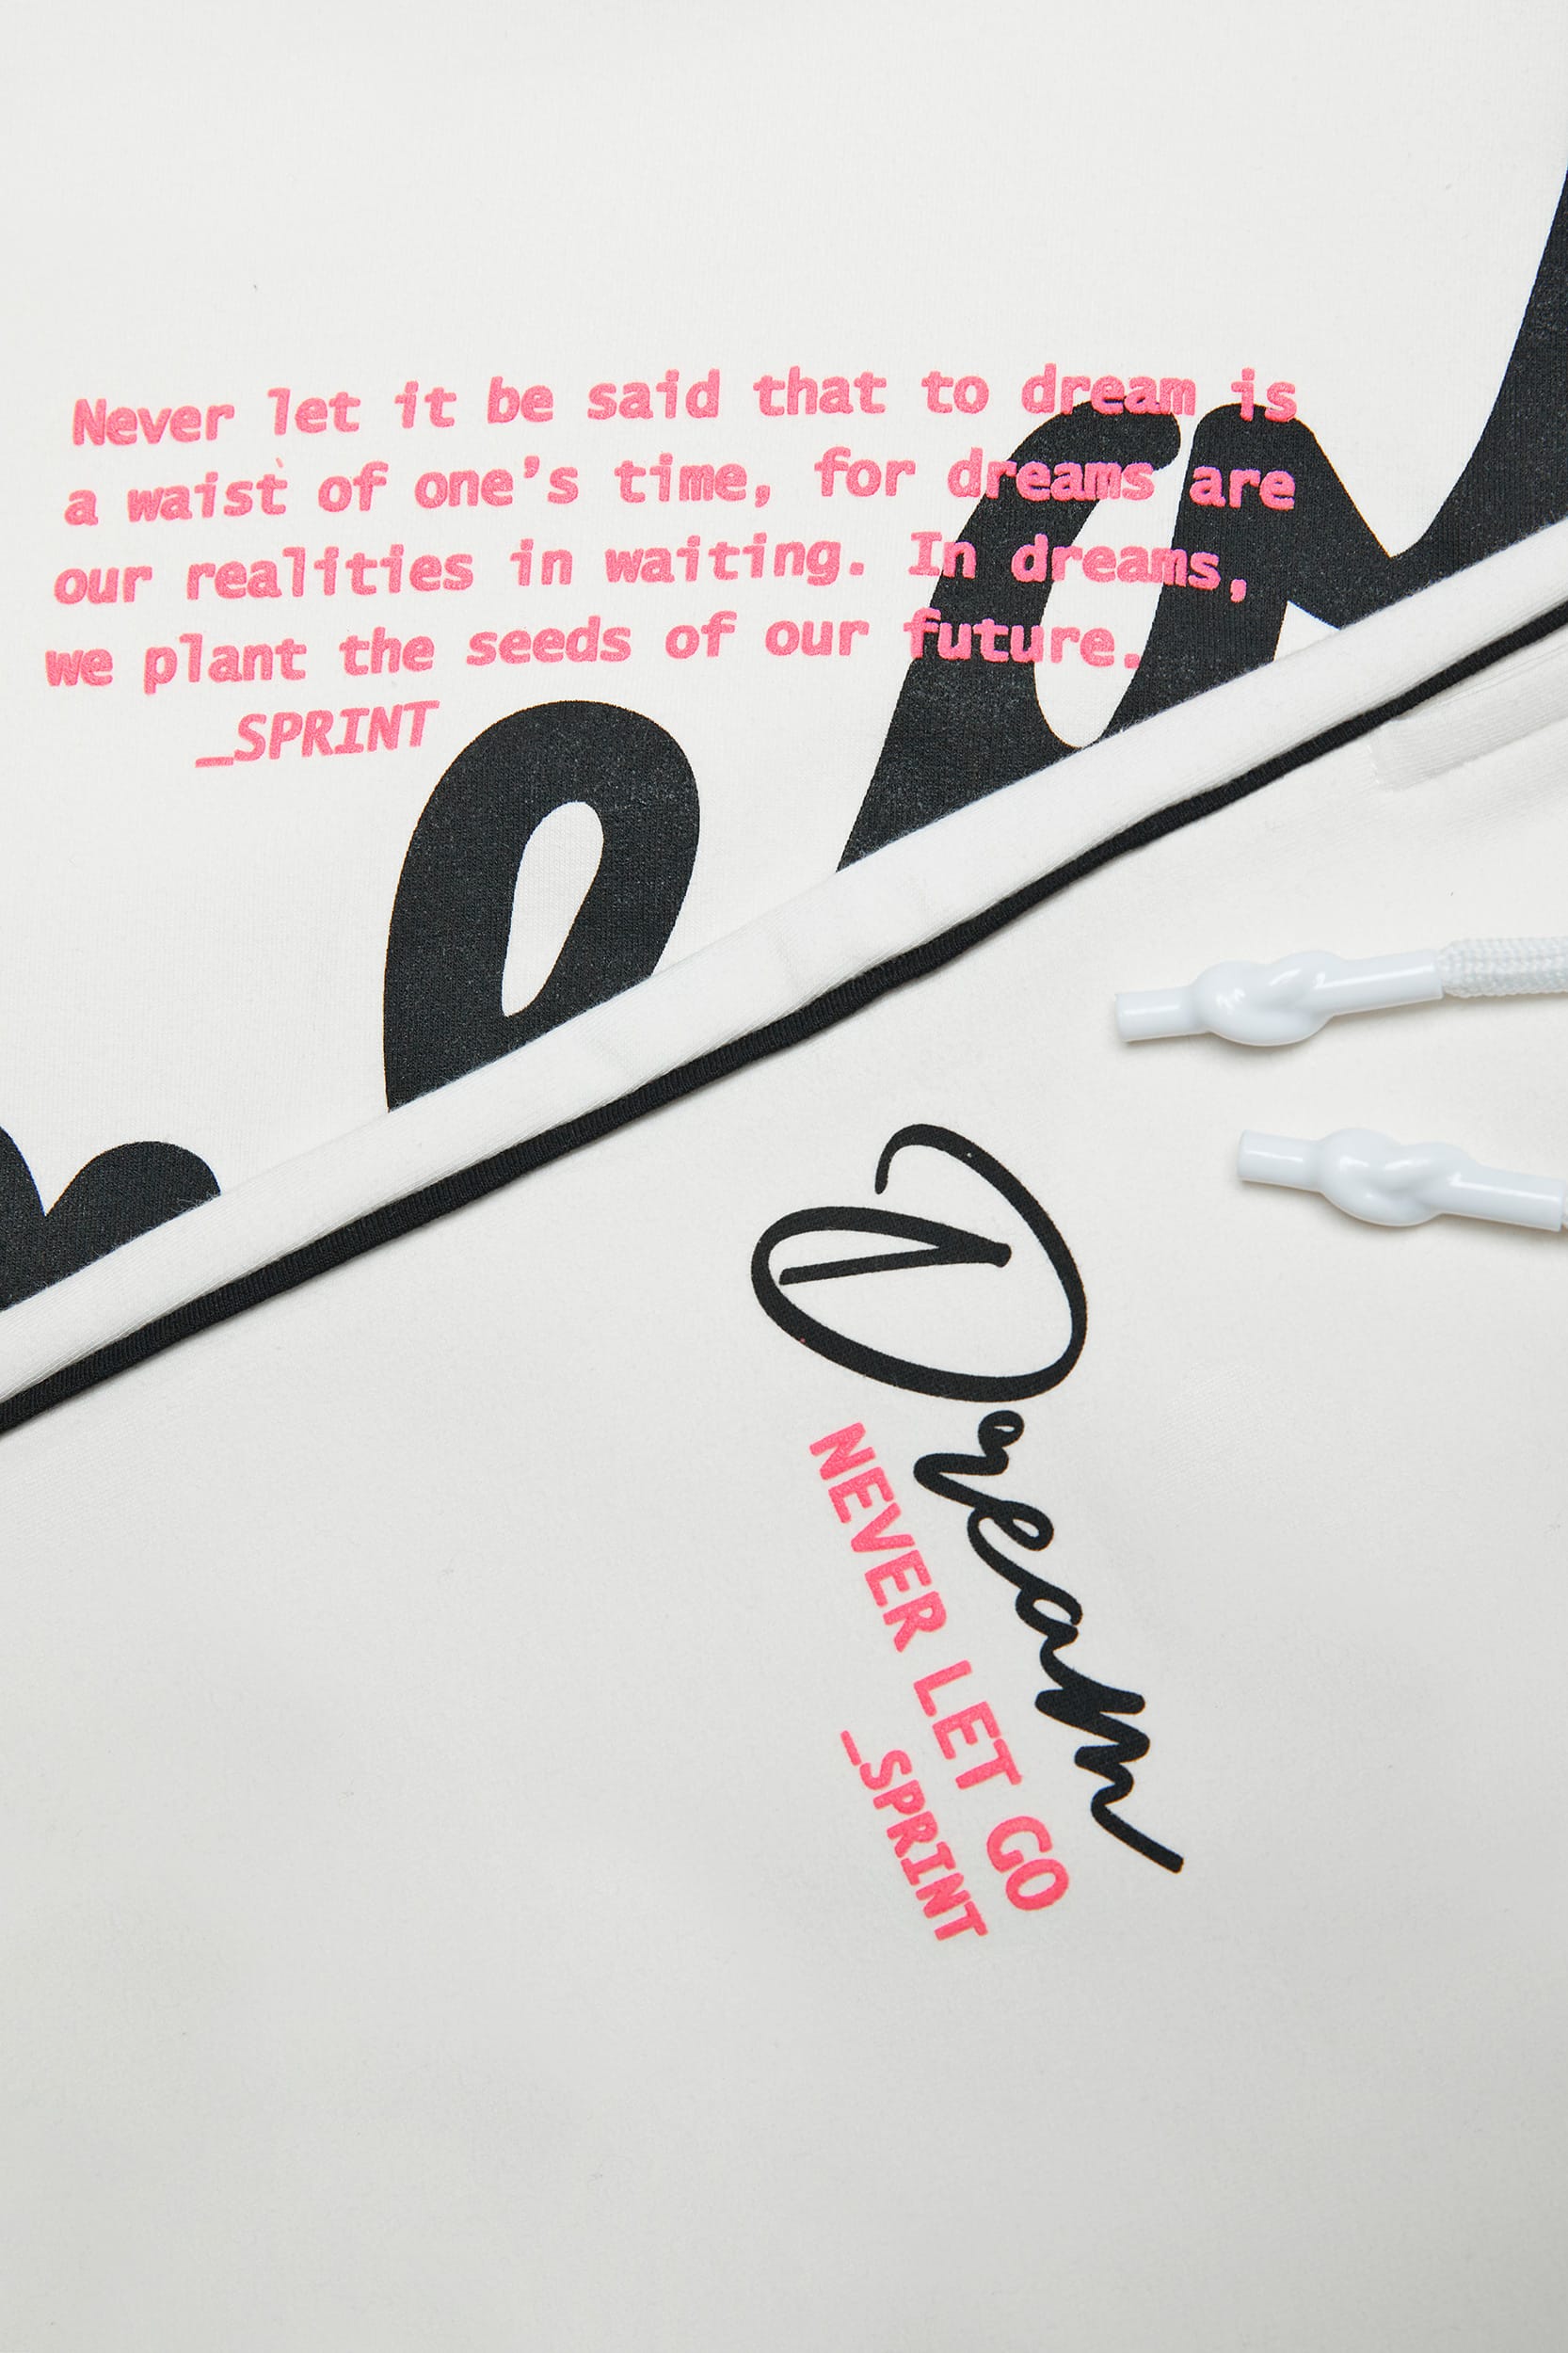 Never let it be said that to dream is
a waist of one's time, for dreams are
our realities in waiting. In dreams,
we plant the seeds of our future.
_SPRINT
Dream
NEVER LET GO
_SPRINT